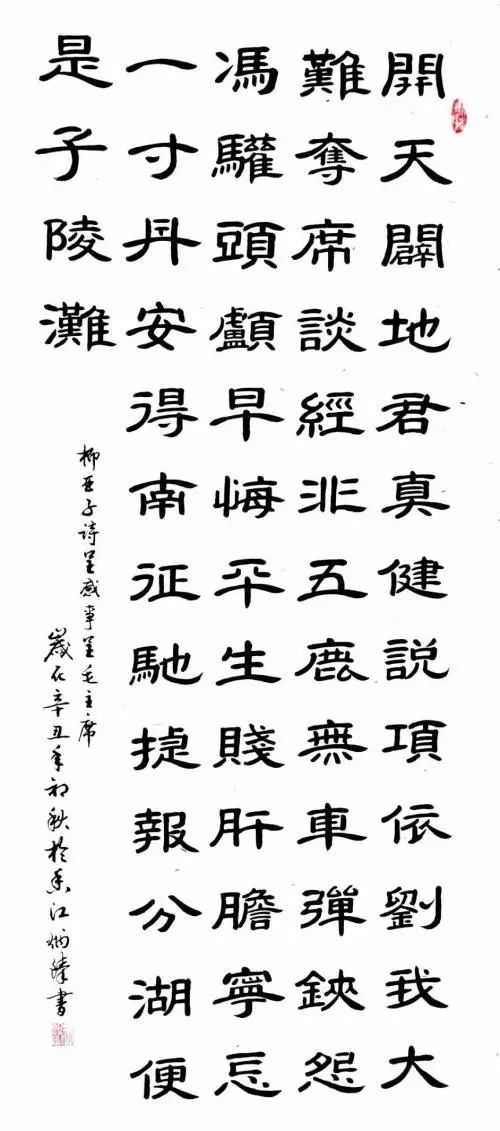 開天闢地君真健説項依劉我大
難奪席談經非五鹿無車彈鋏怨
馮驩頭顱早悔平生賤肝膽寧忘
一寸丹安得南征馳捷報分湖便
是子陵灘
柳亞子詩呈感事呈毛主席
歲在辛丑年初秋於香江書